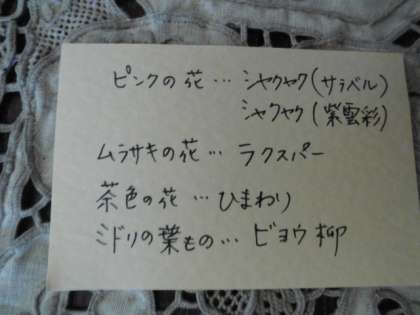 ピンクの花…シャクヤク(サラベル)
シャクヤク(紫雲彩)
ムラサキの花…ラクスパー
茶色の花…ひまわり
ミドリの葉もの…ビヨウ柳